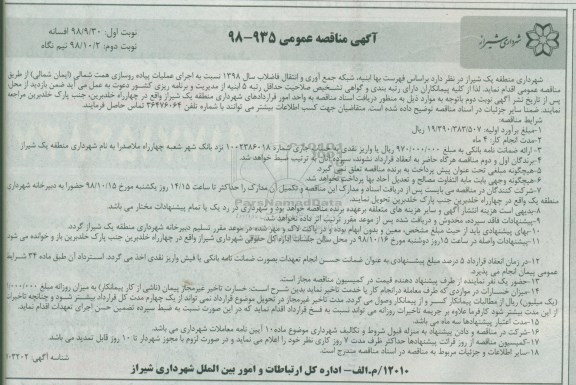 شهرداری شیراز
آگهی مناقصه عمومی ۹۳۵-۹۸
نوبت اول: ۹۸/۹/۳۰ افسانه
نوبت دوم: ۹۸/۱۰/۲ نیم نگاه
شهرداری منطقه یک شیراز در نظر دارد براساس فهرست بها ابنیه، شبکه جمع آوری و انتقال فاضلاب سال ۱۳۹۸ نسبت به اجرای عملیات پیاده روسازی همت شمالی (ایمان شمالی) از طریق
مناقصه عمومی اقدام نماید. لذا از کلیه پیمانکاران دارای رتبه بندی و گواهی تشخیص صلاحیت حداقل رتبه ۵ ابنیه از مدیریت و برنامه ریزی کشور دعوت به عمل می آید ضمن بازدید از محل،
پس از تاریخ نشر آگهی نوبت دوم باتوجه به موارد ذیل به منظور دریافت اسناد مناقصه به واحد امور قراردادهای شهرداری منطقه یک شیراز واقع در چهارراه خلدبرین، جنب پارک خلدبرین مراجعه
نمایند. ضمنا سایر جزئیات در اسناد مناقصه توضیح داده شده است. متقاضیان جهت کسب اطلاعات بیشتر می توانند با شماره تلفن ۳۶۴۷۶۰۶۴ تماس حاصل فرمایند.
شرایط مناقصه:
۱-مبلغ برآورد اولیه: ۱۹/۳۹۰/۳۸۳/۵۰۷ ریال
۲-مدت انجام کار: ۴ ماه
۳- ارائه ضمانت نامه بانکی به مبلغ ۹۷۰/۰۰۰/۰۰۰ ریال یا واریز نقدی به حساب جاری شماره ۱۰۰۲۳۸۶۰۱۸ نزد بانک شهر شعبه چهارراه ملاصدرا به نام شهرداری منطقه یک شیراز
۴-برندگان اول و دوم مناقصه هرگاه حاضر به انعقاد قرارداد نشوند، سپرده آنان به ترتیب ضبط خواهد شد.
۵-هیچگونه مبلغی تحت عنوان پیش پرداخت به برنده مناقصه تعلق نمی گیرد.
۶-هیچگونه وجهی بابت مابه التفاوت مصالح و تعدیل آحاد بها پرداخت نخواهد شد.
۷-شرکت کنندگان در مناقصه می بایست پس از دریافت اسناد و مدارک این مناقصه و تکمیل آن مدارک را حداکثر تا ساعت ۱۴/۱۵ روز یکشنبه مورخ ۹۸/۱۰/۱۵ حضورا به دبیرخانه شهرداری
منطقه یک واقع در چهارراه خلدبرین جنب پارک خلدبرین تحویل نمایند.
۸-بدیهی است هزینه انتشار آگهی و سایر هزینه های متعلقه برعهده برنده مناقصه خواهد بود و شهرداری در رد یک یا تمام پیشنهادات مختار می باشد.
۹-پیشنهادات فاقد سپرده، مخدوش و دریافت شده پس از موعد مقرر ترتیب اثر داده نخواهد شد.
۱۰-بهای پیشنهادی باید از حیث مبلغ مشخص، معین و بدون ابهام بوده و در پاکت لاک و مهر شده در موعد مقرر تسلیم دبیرخانه شهرداری منطقه یک شیراز گردد.
۱۱-پیشنهادات واصله در ساعت ۱۵ روز دوشنبه مورخ ۹۸/۱۰/۱۶ در محل سالن جلسات اداره کل حقوقی شهرداری شیراز واقع در چهارراه خلدبرین جنب پارک خلدبرین باز و خوانده می شود
۱۲-در زمان انعقاد قرارداد ۵ درصد مبلغ پیشنهادی به عنوان ضمانت حسن انجام تعهدات بصورت ضمانت نامه بانکی یا فیش واریز نقدی اخذ می گردد. استرداد آن طبق ماده ۳۴ شرایط
عمومی پیمان انجام می پذیرد.
۱۳-حضور یک نفر نماینده از طرف پیشنهاد دهنده قیمت در کمیسیون مناقصه مجاز است.
۱۴-میزان خسارات در مواردی که طرف معامله در انجام کار یا خدمت تاخیر نماید بدین شرح است: خسارت تاخیر غیرمجاز پیمان (ناشی از کار پیمانکار) به میزان روزانه مبلغ ۱/۰۰۰/۰۰۰
(یک میلیون) ریال از مطالبات پیمانکار کسر و از پیمانکار وصول می گردد. مدت تاخیر غیرمجاز در تحویل موضوع قرارداد نمی تواند از یک چهارم مدت کل قرارداد بیشتر شود و چنانچه تاخیرات
از این مدت بیشتر شود کارفرما علاوه بر جریمه تاخیرات روزانه می تواند نسبت به فسخ قرارداد اقدام نماید که در این صورت نسبت به ضبط سپرده تضمین حسن اجرای تعهدات اقدام نماید.
۱۵-مدت اعتبار پیشنهادها سه ماه می باشد.
۱۶-شرکت در مناقصه و دادن پیشنهاد به منزله قبول شروط و تکالیف شهرداری موضوع ماده ۱۰ آیین نامه معاملات شهرداری می باشد.
۱۷-کمیسیون مناقصه از روز قرائت پیشنهادها حداکثر ظرف مدت ۷ روز کاری نظر خود را اعلام می نماید و در صورت لزوم با مجوز شهردار تا ۱۰ روز قابل تمدید می باشد.
۱۸-سایر اطلاعات و جزئیات مربوط به مناقصه در اسناد مناقصه مندرج است.
شناسه آگهی:
۱۲۰۱۰/م.الف- اداره کل ارتباطات و امور بین الملل شهرداری شیراز